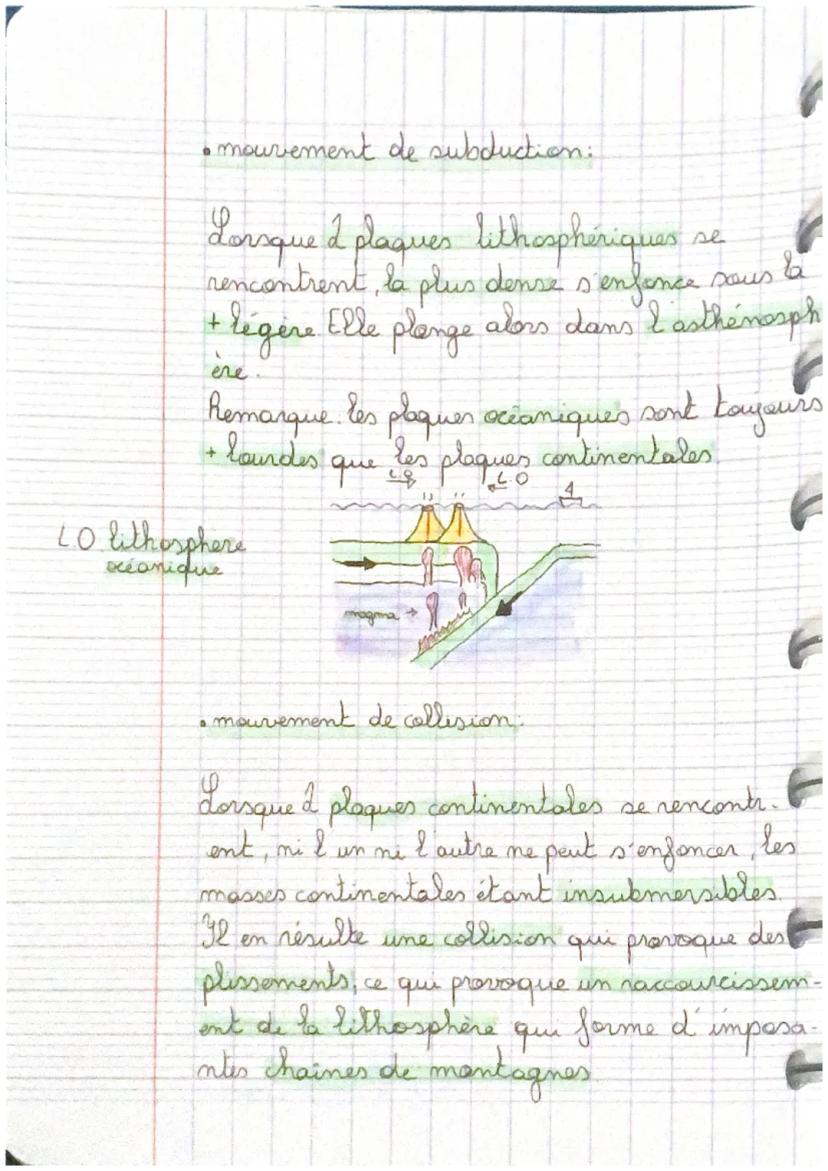 • mouvement de subduction:
Lorsque 2 plaques lithosphériques se
rencontrent, la plus dense s'enfonce sous la
+ légère Elle plonge alors dans l'asthénosph
ère.
Remarque. les plaques océaniques sont toujours
+ lourdes que les plaques continentales.
L.O
L.O lithosphère
océanique
magma →
• mouvement de collision:
Lorsque 2 plaques continentales se rencontr-
ent, ni l'un ni l'autre ne peut s'enfoncer, les
masses continentales étant insubmersibles.
Il en résulte une collision qui provoque des
plissements, ce qui provoque un raccourcissem-
ent de la lithosphère qui forme d'imposa-
ntes chaines de montagnes